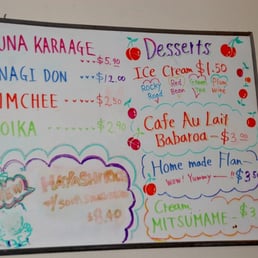 UNA KARAAGE
$5.90
NAGI DON ---- $12.00
IMCHEE ---- $2.50
OIKA ---- $2.90
NEW
HAYASHI RICE
w/ SOUP
$8.40
Desserts
Ice Cream $1.50
Rocky Road
Red Bean
Green Tea
Plum Wine
Cafe Au Lait
Babaroa - $3.00
Home made Flan
Wow! Yummy - $3.5
Cream
MITSUMAME - $3